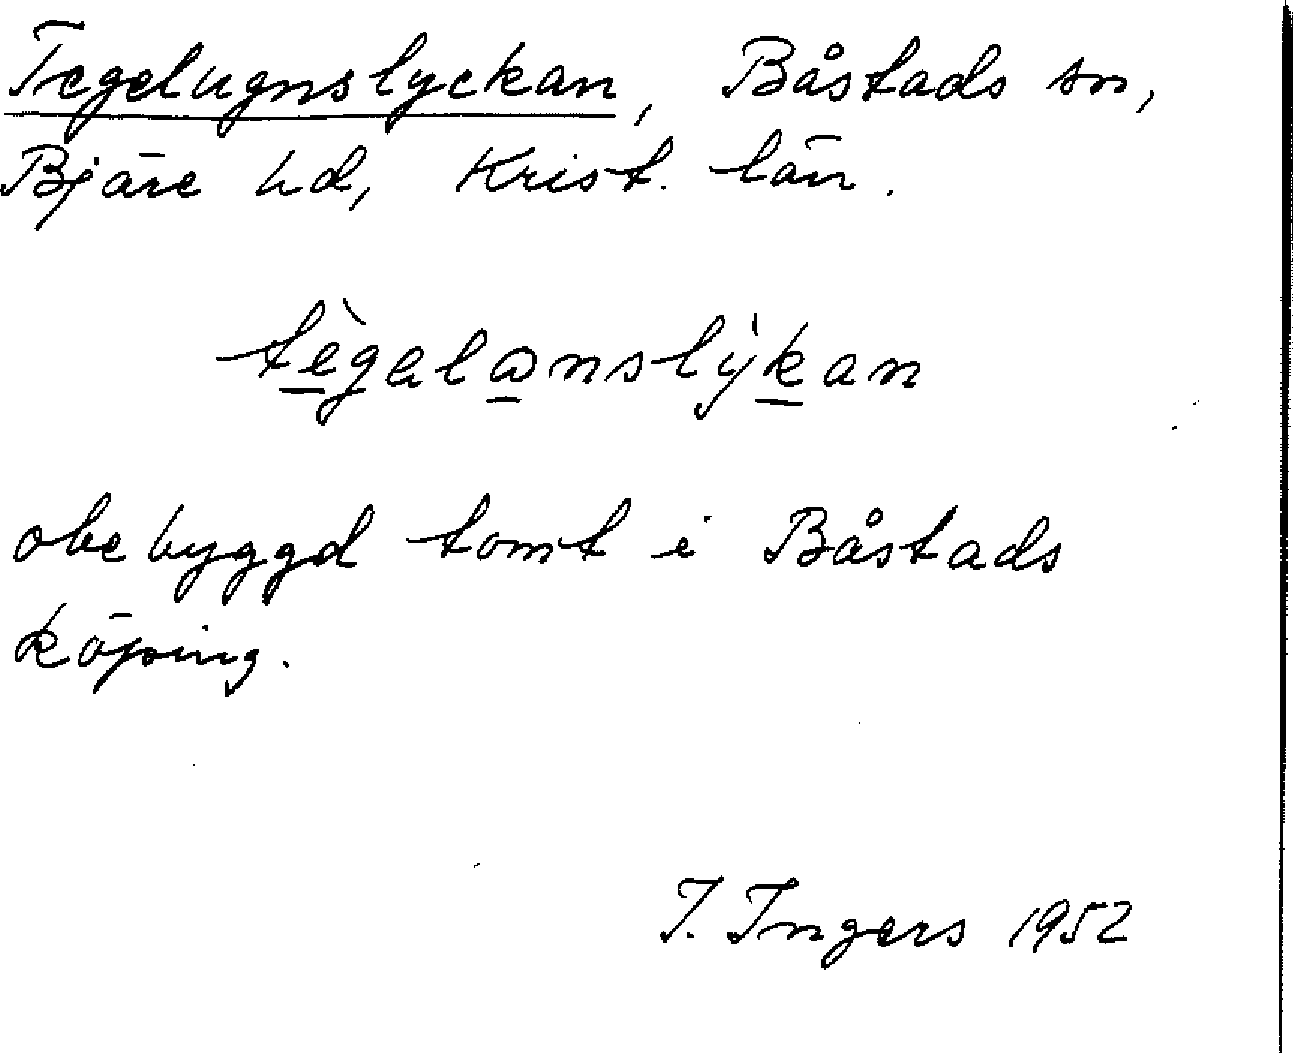 Tegelugnslyckan, Båstads sn,
Bjäre hd, Krist. län.
tègəlωnslýkan
obebyggd tomt i Båstads
köping.
I. Ingers 1952